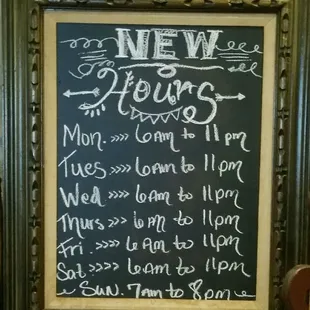 NEW
Hours
Mon. >>>> 6am to 11pm
Tues >>>> 6am to 11pm
Wed >>>> 6am to 11pm
Thurs >>> 6am to 11pm
Fri. >>>> 6am to 11pm
Sat >>>>> 6am to 11pm
SUN. 7am to 8pm